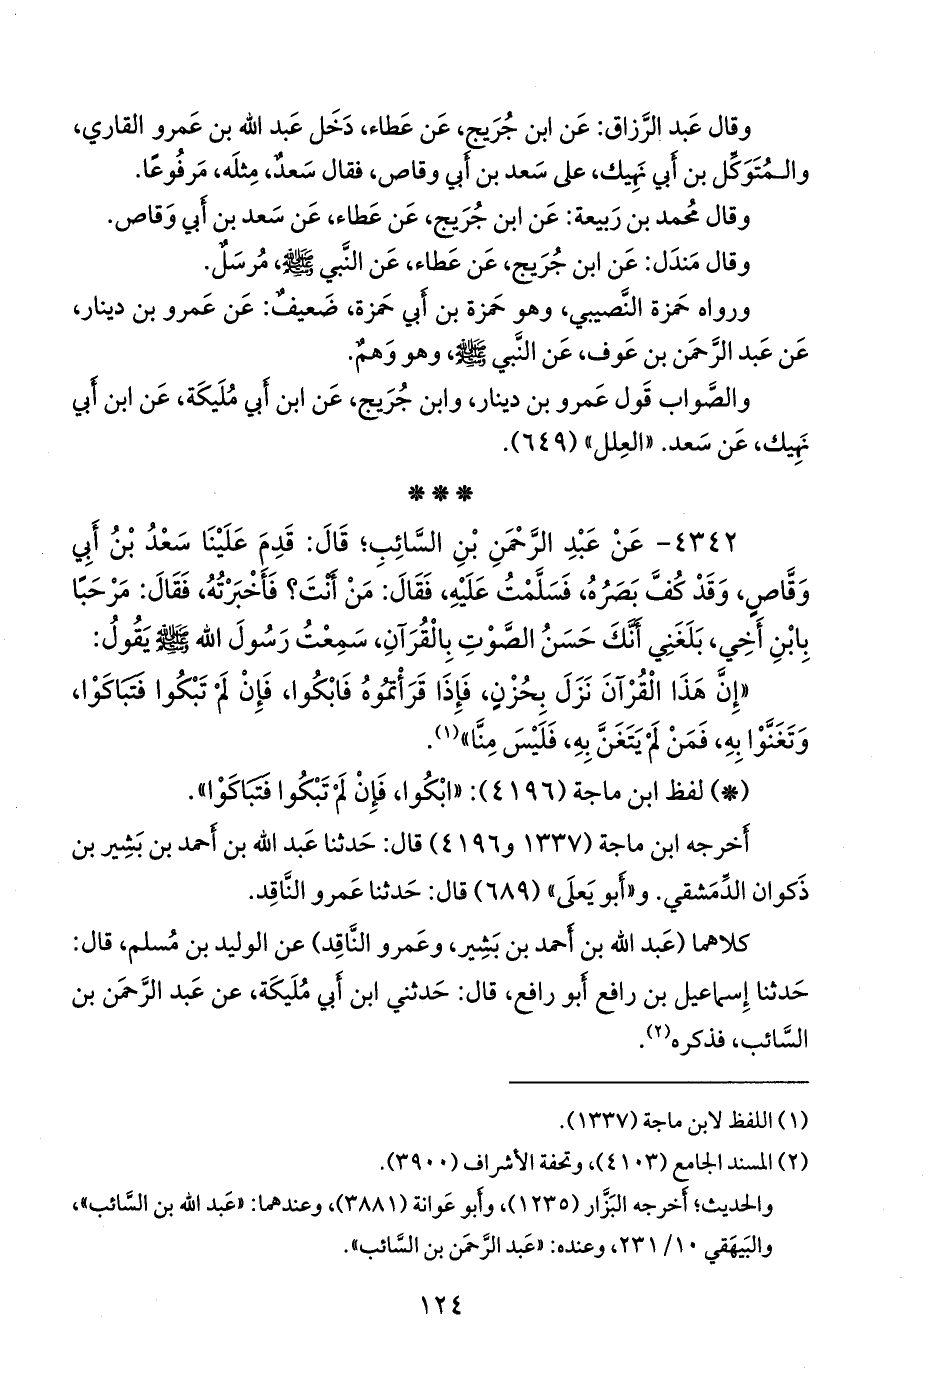 وقال عَبد الرَّزاق: عَن ابن جُرَيج، عَن عَطاء، دَخَل عَبد الله بن عَمرو القاري،
والـمُتَوَكِّل بن أَبي نَهِيك، على سَعد بن أَبي وقاص، فقال سَعدٌ، مِثلَه، مَرفُوعًا.
وقال مُحمد بن رَبيعة: عَن ابن جُرَيج، عَن عَطاء، عَن سَعد بن أَبي وَقاص.
وقال مَندَل: عَن ابن جُرَيج، عَن عَطاء، عَن النَّبي ﷺ، مُرسَلٌ.
ورواه حَمزة النَّصيبي، وهو حَمزة بن أَبي حَمزة، ضَعيفٌ: عَن عَمرو بن دينار،
عَن عَبد الرَّحمَن بن عَوف، عَن النَّبي ﷺ، وهو وَهمٌ.
والصَّواب قَول عَمرو بن دينار، وابن جُرَيج، عَن ابن أَبي مُلَيكَة، عَن ابن أَبي
نَهِيك، عَن سَعد. «العِلل» (٦٤٩).
* * *
٤٣٤٢- عَنْ عَبْدِ الرَّحْمَنِ بْنِ السَّائِبِ؛ قَالَ: قَدِمَ عَلَيْنَا سَعْدُ بْنُ أَبِي
وَقَّاصٍ، وَقَدْ كُفَّ بَصَرُهُ، فَسَلَّمْتُ عَلَيْهِ، فَقَالَ: مَنْ أَنْتَ؟ فَأَخْبَرْتُهُ، فَقَالَ: مَرْحَبًا
بِابْنِ أَخِي، بَلَغَنِي أَنَّكَ حَسَنُ الصَّوْتِ بِالْقُرْآنِ، سَمِعْتُ رَسُولَ الله ﷺ يَقُولُ:
«إِنَّ هَذَا الْقُرْآنَ نَزَلَ بِحُزْنٍ، فَإِذَا قَرَأْتُمُوهُ فَابْكُوا، فَإِنْ لَمْ تَبْكُوا فَتَبَاكَوْا،
وَتَغَنَّوْا بِهِ، فَمَنْ لَمْ يَتَغَنَّ بِهِ، فَلَيْسَ مِنَّا»(١).
(*) لفظ ابن ماجة (٤١٩٦): «ابْكُوا، فَإِنْ لَمْ تَبْكُوا فَتَبَاكَوْا».
أَخرجه ابن ماجة (١٣٣٧ و٤١٩٦) قال: حَدثنا عَبد الله بن أَحمد بن بَشِير بن
ذَكوان الدِّمَشقي. و«أَبو يَعلَى» (٦٨٩) قال: حَدثنا عَمرو النَّاقِد.
كلاهما (عَبد الله بن أَحمد بن بَشِير، وعَمرو النَّاقِد) عن الوليد بن مُسلم، قال:
حَدثنا إِسماعيل بن رافع أَبو رافع، قال: حَدثني ابن أَبي مُلَيكَة، عن عَبد الرَّحمَن بن
السَّائب، فذكره(٢).
(١) اللفظ لابن ماجة (١٣٣٧).
(٢) المسند الجامع (٤١٠٣)، وتحفة الأَشراف (٣٩٠٠).
والحديث؛ أَخرجه البَزَّار (١٢٣٥)، وأَبو عَوانة (٣٨٨١)، وعندهما: «عَبد الله بن السَّائب»،
والبَيهَقي ١٠/ ٢٣١، وعنده: «عَبد الرَّحمَن بن السَّائب».
١٢٤